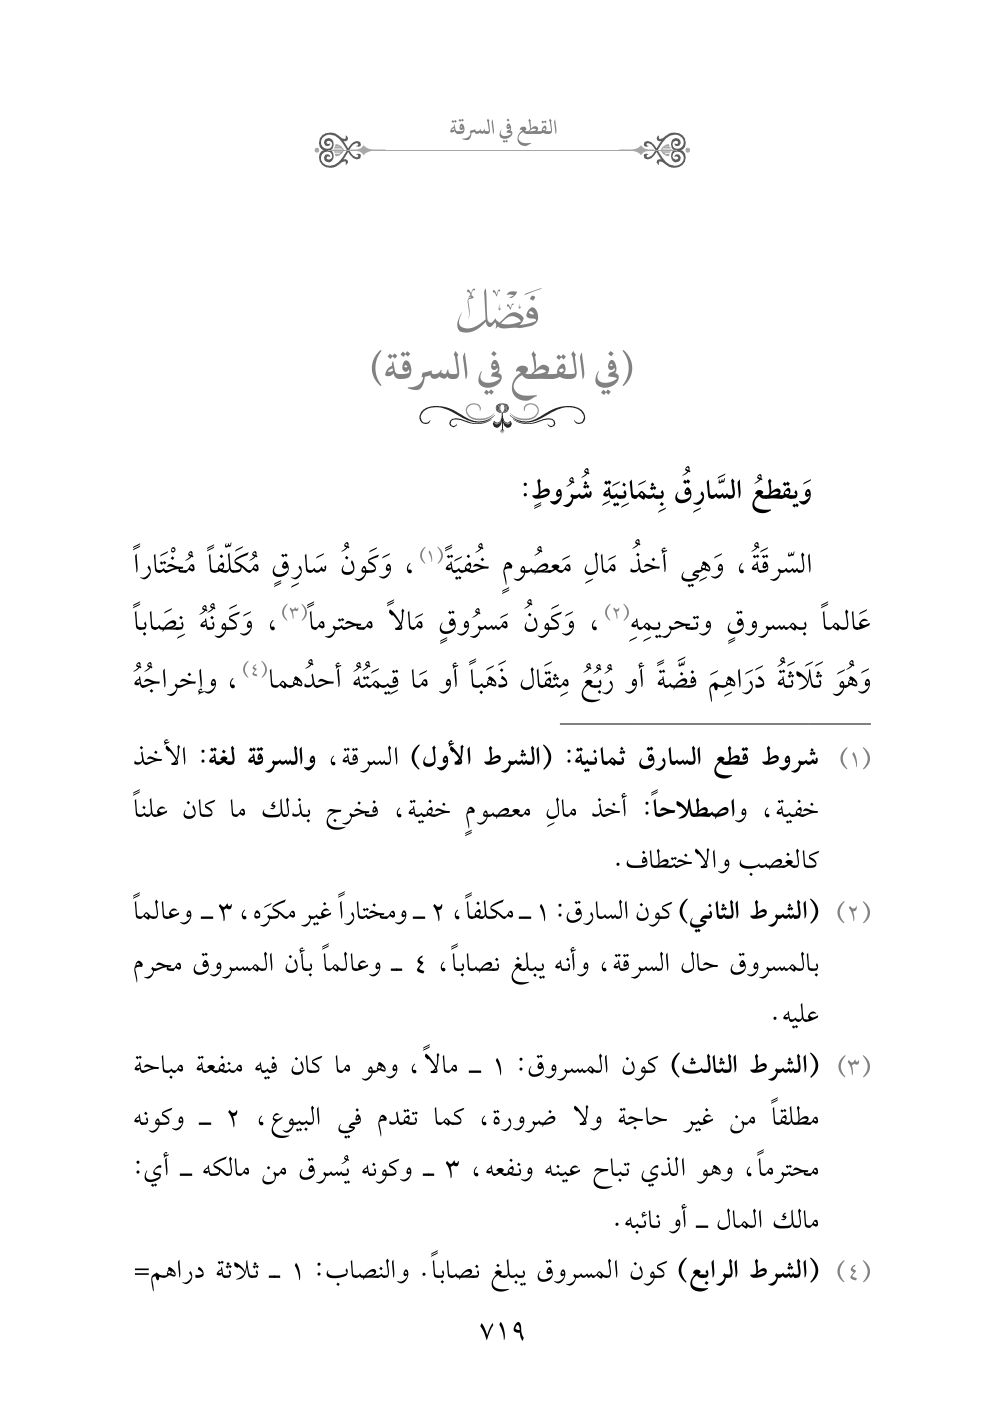 القطع في السرقة
فَصْل
(في القطع في السرقة)
وَيقطعُ السَّارِقُ بِثمَانِيَةِ شُرُوطٍ:
السّرقَةُ، وَهِي أخذُ مَالِ مَعصُومٍ خُفيَةً(١)، وَكَونُ سَارِقٍ مُكَلّفاً مُخْتَاراً
عَالماً بمسروقٍ وتحريمِهِ(٢)، وَكَونُ مَسرُوقٍ مَالاً محترماً(٣)، وَكَونُهُ نِصَاباً
وَهُوَ ثَلَاثَةُ دَرَاهِمَ فضَّةً أو رُبُعُ مِثقَال ذَهَباً أو مَا قِيمَتُهُ أحدُهما(٤)، وإخراجُهُ
(١) شروط قطع السارق ثمانية: (الشرط الأول) السرقة، والسرقة لغة: الأخذ
خفية، واصطلاحاً: أخذ مالِ معصومٍ خفية، فخرج بذلك ما كان علناً
كالغصب والاختطاف.
(٢) (الشرط الثاني) كون السارق: ١ ـ مكلفاً، ٢ ـ ومختاراً غير مكرَه، ٣ ـ وعالماً
بالمسروق حال السرقة، وأنه يبلغ نصاباً، ٤ ـ وعالماً بأن المسروق محرم
عليه.
(٣) (الشرط الثالث) كون المسروق: ١ ـ مالاً، وهو ما كان فيه منفعة مباحة
مطلقاً من غير حاجة ولا ضرورة، كما تقدم في البيوع، ٢ ـ وكونه
محترماً، وهو الذي تباح عينه ونفعه، ٣ ـ وكونه يُسرق من مالكه ـ أي:
مالك المال ـ أو نائبه.
(٤) (الشرط الرابع) كون المسروق يبلغ نصاباً. والنصاب: ١ ـ ثلاثة دراهم=
٧١٩